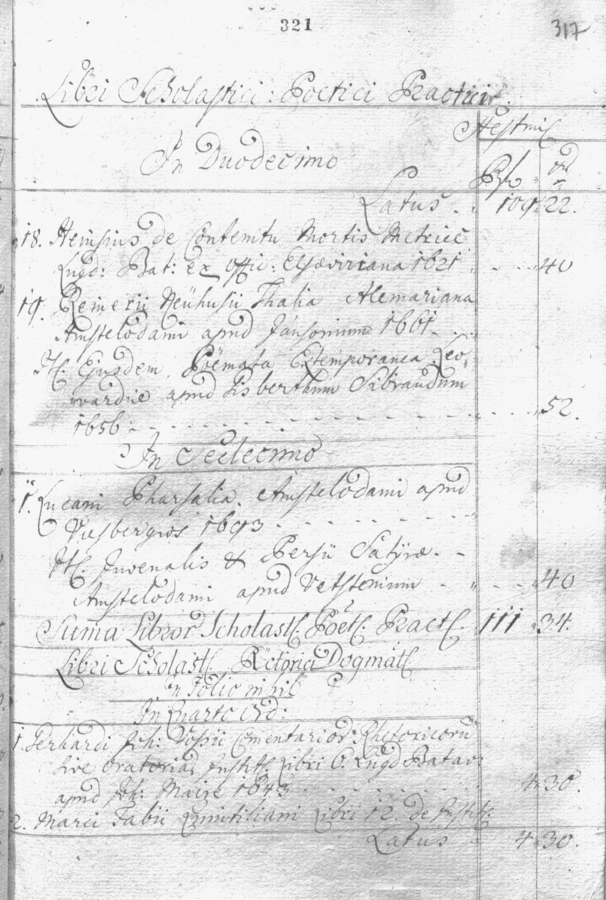 321
317
Libri Scholastici: Poetici Practici.
Æstim
In Duodecimo
Rf xr
Latus . 109. 22.
18. Heinsius de Contemtu Mortis Metricè
Lugd: Bat: ex Offic: Elsæviriana 1621 40
19. Reineri Neühusii Thalia Alcmariana
Amstelodami apud Jansonium 1661.
It. Ejusdem Poëmata Extemporanea Leo,
wardiæ apud Gisbertum Sibrandum
1656 52.
In Sedecimo
1. Lucani Pharsalia. Amstelodami apud
Wesbergios 1693
It. Juvenalis & Persii Satÿræ
Amstelodami apud Vetstenium 40
Suma Libror Scholast. Poët. Pract. 111 34.
Libri Scholast. Rhetorici Dogmat.
In Folio nihil
In Quarto ord:
1. Gerhardi Joh: Vossii Comentarior: Rhetoricorū
sive Oratoriar Instit. Libri 6. Lugd Batav
apud Joh: Maire 1643 4. 30.
2. Marci Fabii Quintiliani Libri 12. de Instit.
Latus 4. 30.